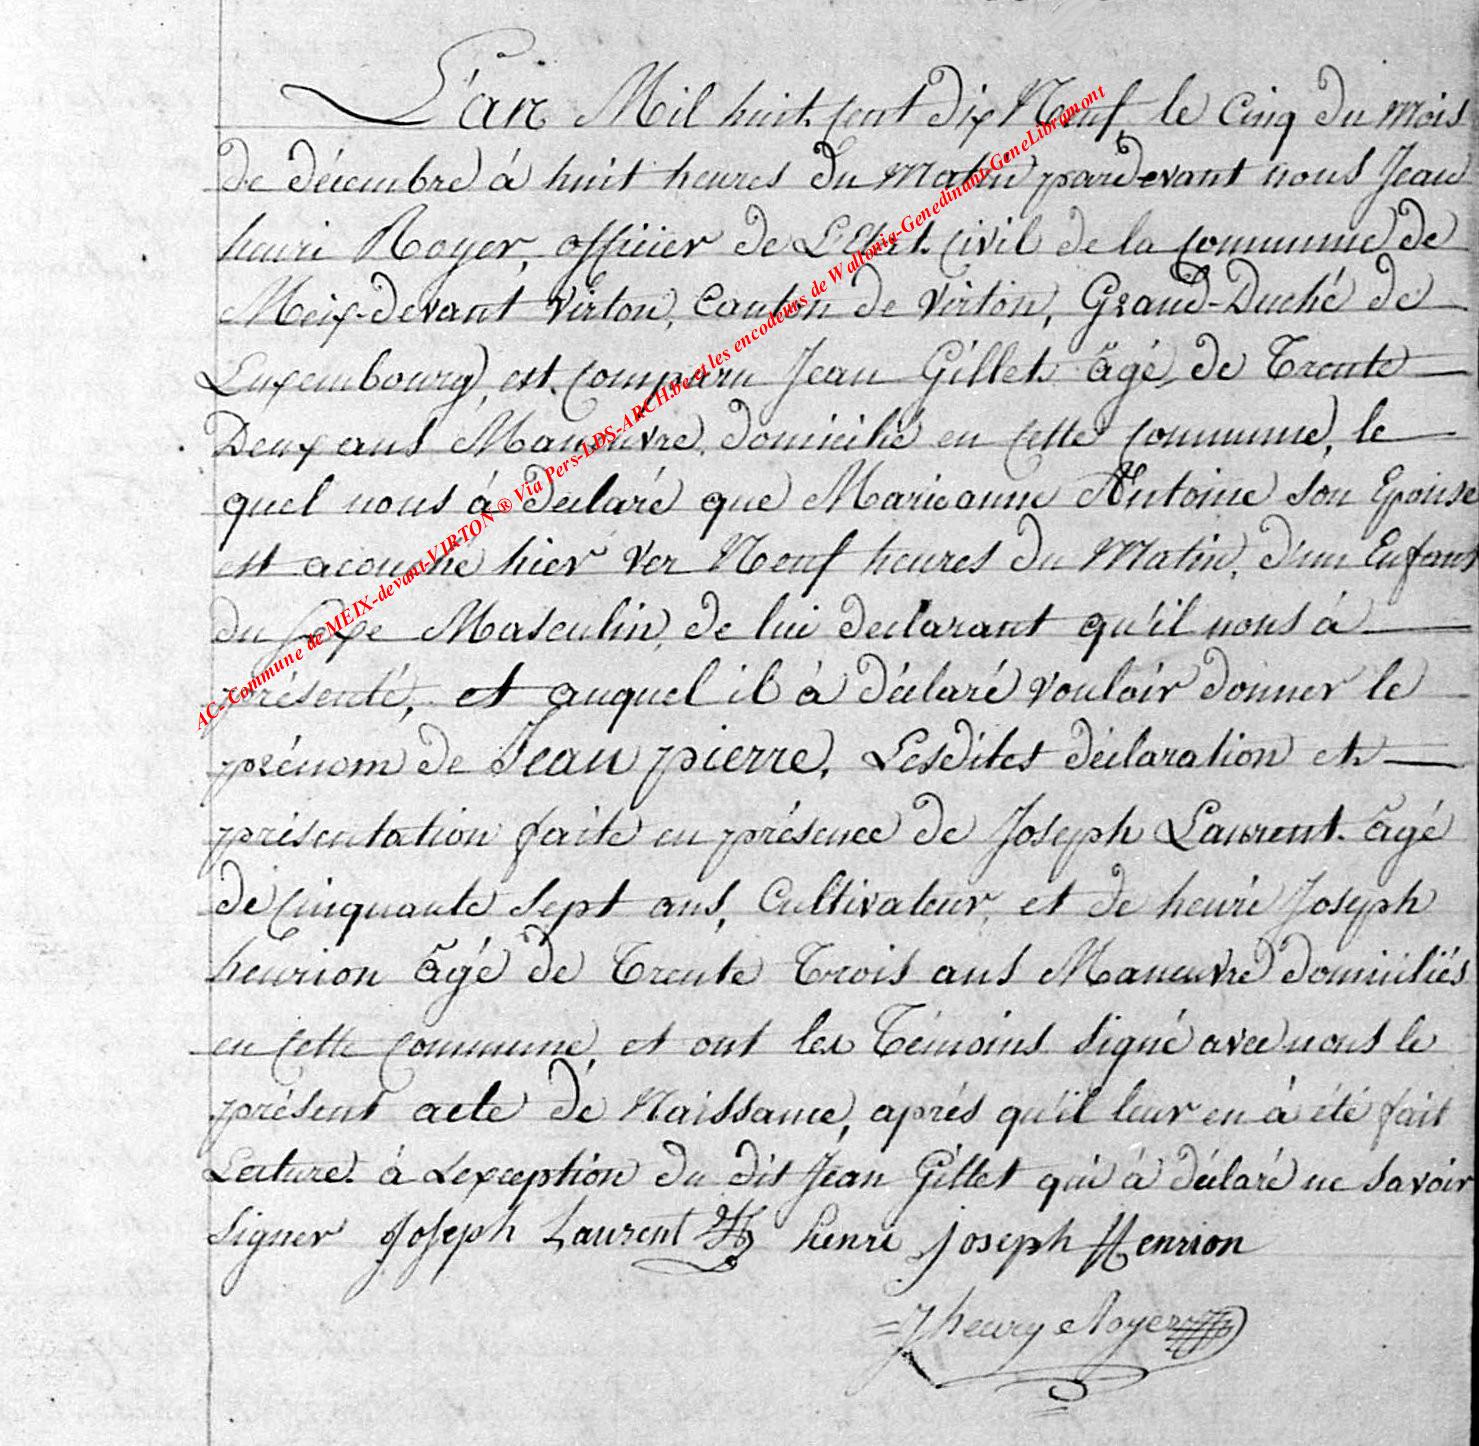 L'an Mil huit cent dix Neuf le Cinq du mois
de décembre à huit heures du matin pardevant nous Jean
henri Royer, officier de L'Etat civil de la commune de
Meix-devant Virton, Canton de Virton, Grand-Duché de
Luxembourg, est comparu Jean Gillet âgé de Trente
Deux ans Maneuvre, domicilié en cette commune, le
quel nous à déclaré que Marieanne Antoine son Epouse
est acouché hier ver Neuf heures du Matin, d'un Enfant
du sexe Masculin, de lui déclarant qu'il nous à
présenté, et auquel il à déclaré vouloir donner le
prénom de Jean pierre, Lesdites déclaration et
présentation faite en présence de Joseph Laurent âgé
de cinquante sept ans, Cultivateur, et de henri Joseph
henrion âgé de Trente Trois ans Maneuvre domiciliés
en cette commune, et ont les Témoins signé avec nous le
présent acte de Naissance, aprés qu'il leur en à été fait
Lecture à L'exception du dit Jean Gillet qui à déclaré ne savoir
signer Joseph Laurent henri joseph Henrion
J henry Royer
AC-Commune de MEIX-devant-VIRTON ® Via Pers-LDS-ARCH.be et les encodeurs de Wallonia-Genedinant-GeneLibramont